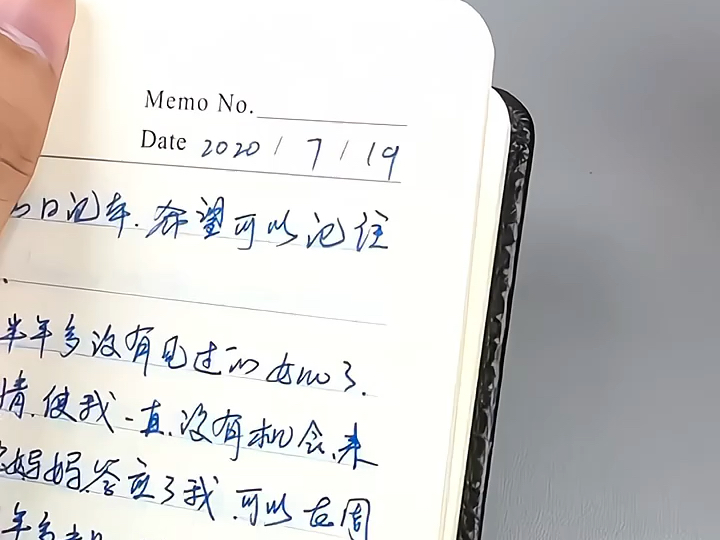 Memo No.
Date 2020 / 7 / 19
日记本.希望可以记住
半年多没有见过的女儿了.
情.使我一直.没有机会.来
妈妈.答应了我.可以在周
年多